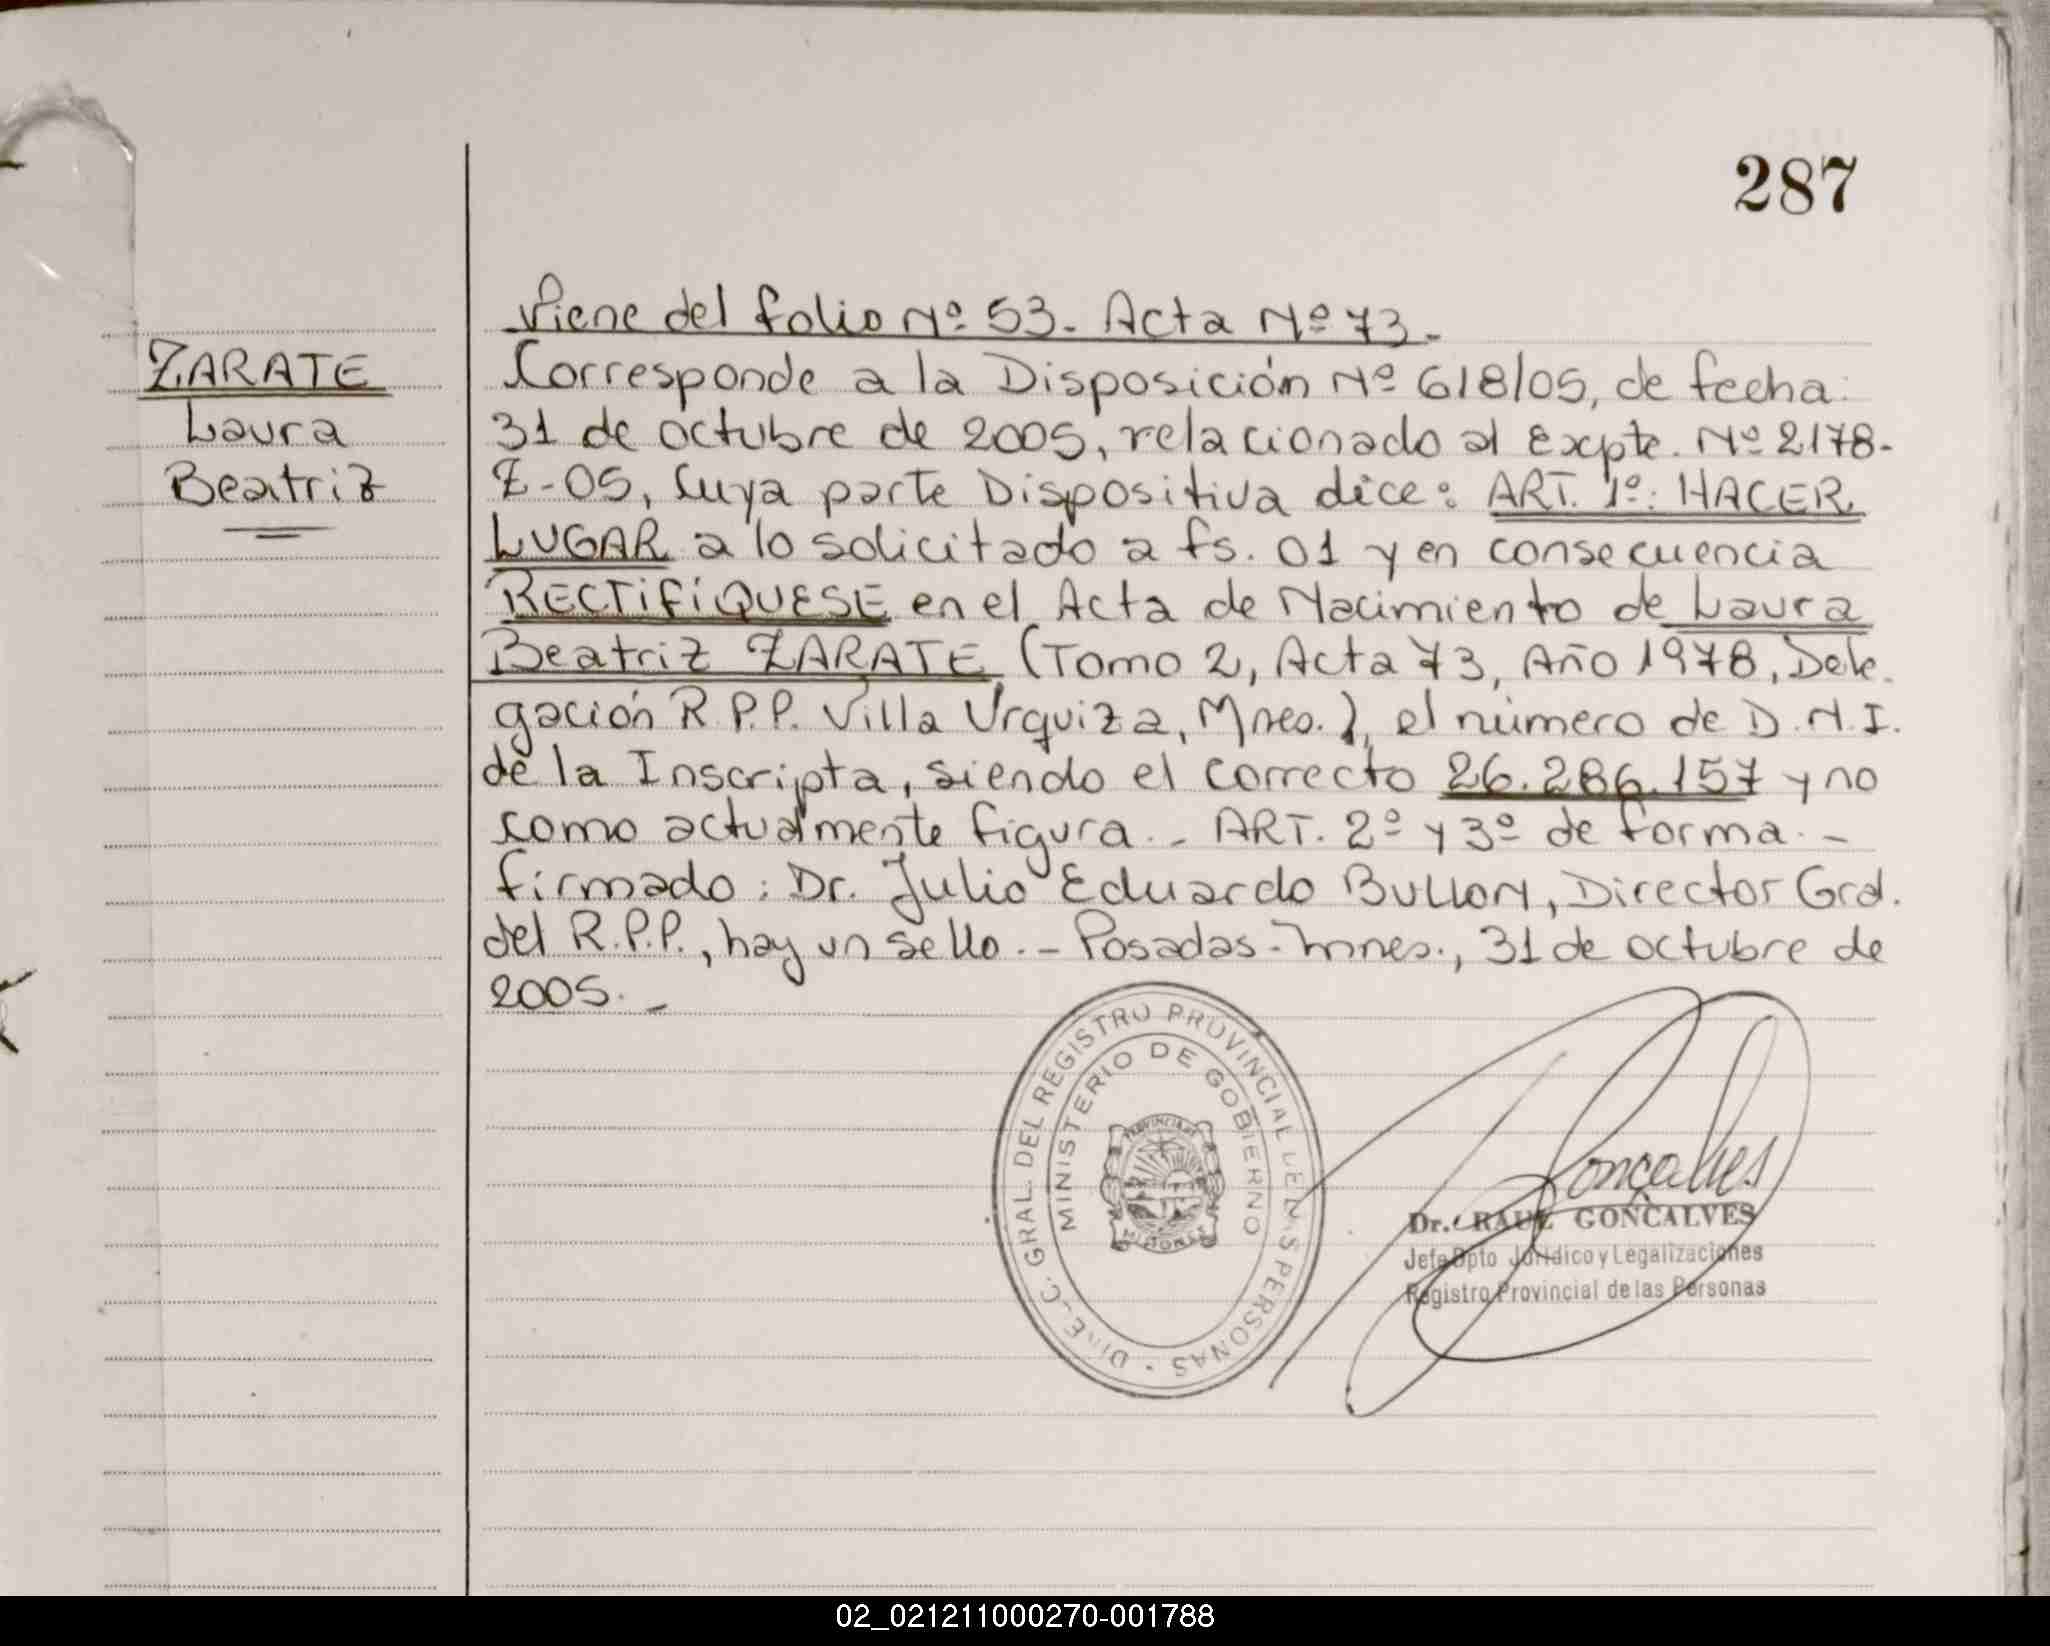 287
Viene del folio Nº 53. Acta Nº 73.-
ZARATE
Laura
Beatriz
Corresponde a la Disposición Nº 618/05, de fecha:
31 de octubre de 2005, relacionado al Expte. Nº 2178-
Z-05, Cuya parte Dispositiva dice: ART. 1º: HACER
LUGAR a lo solicitado a fs. 01 y en consecuencia
RECTIFÍQUESE en el Acta de Nacimiento de Laura
Beatriz ZARATE (Tomo 2, Acta 73, Año 1978, Dele-
gación R.P.P. Villa Urquiza, Mnes.), el número de D.N.I.
de la Inscripta, siendo el correcto 26.286.157 y no
como actualmente figura.- ART. 2º y 3º de forma.-
firmado: Dr. Julio Eduardo BULLON, Director Gral.
del R.P.P., hay un sello.- Posadas-Mnes., 31 de octubre de
2005.-
DIREC. GRAL. DEL REGISTRO PROVINCIAL DE LAS PERSONAS
MINISTERIO DE GOBIERNO
PROVINCIA DE
MISIONES
Goncalves
Dr. RAUL GONCALVES
Jefe Dpto Jurídico y Legalizaciones
Registro Provincial de las Personas
02_021211000270-001788